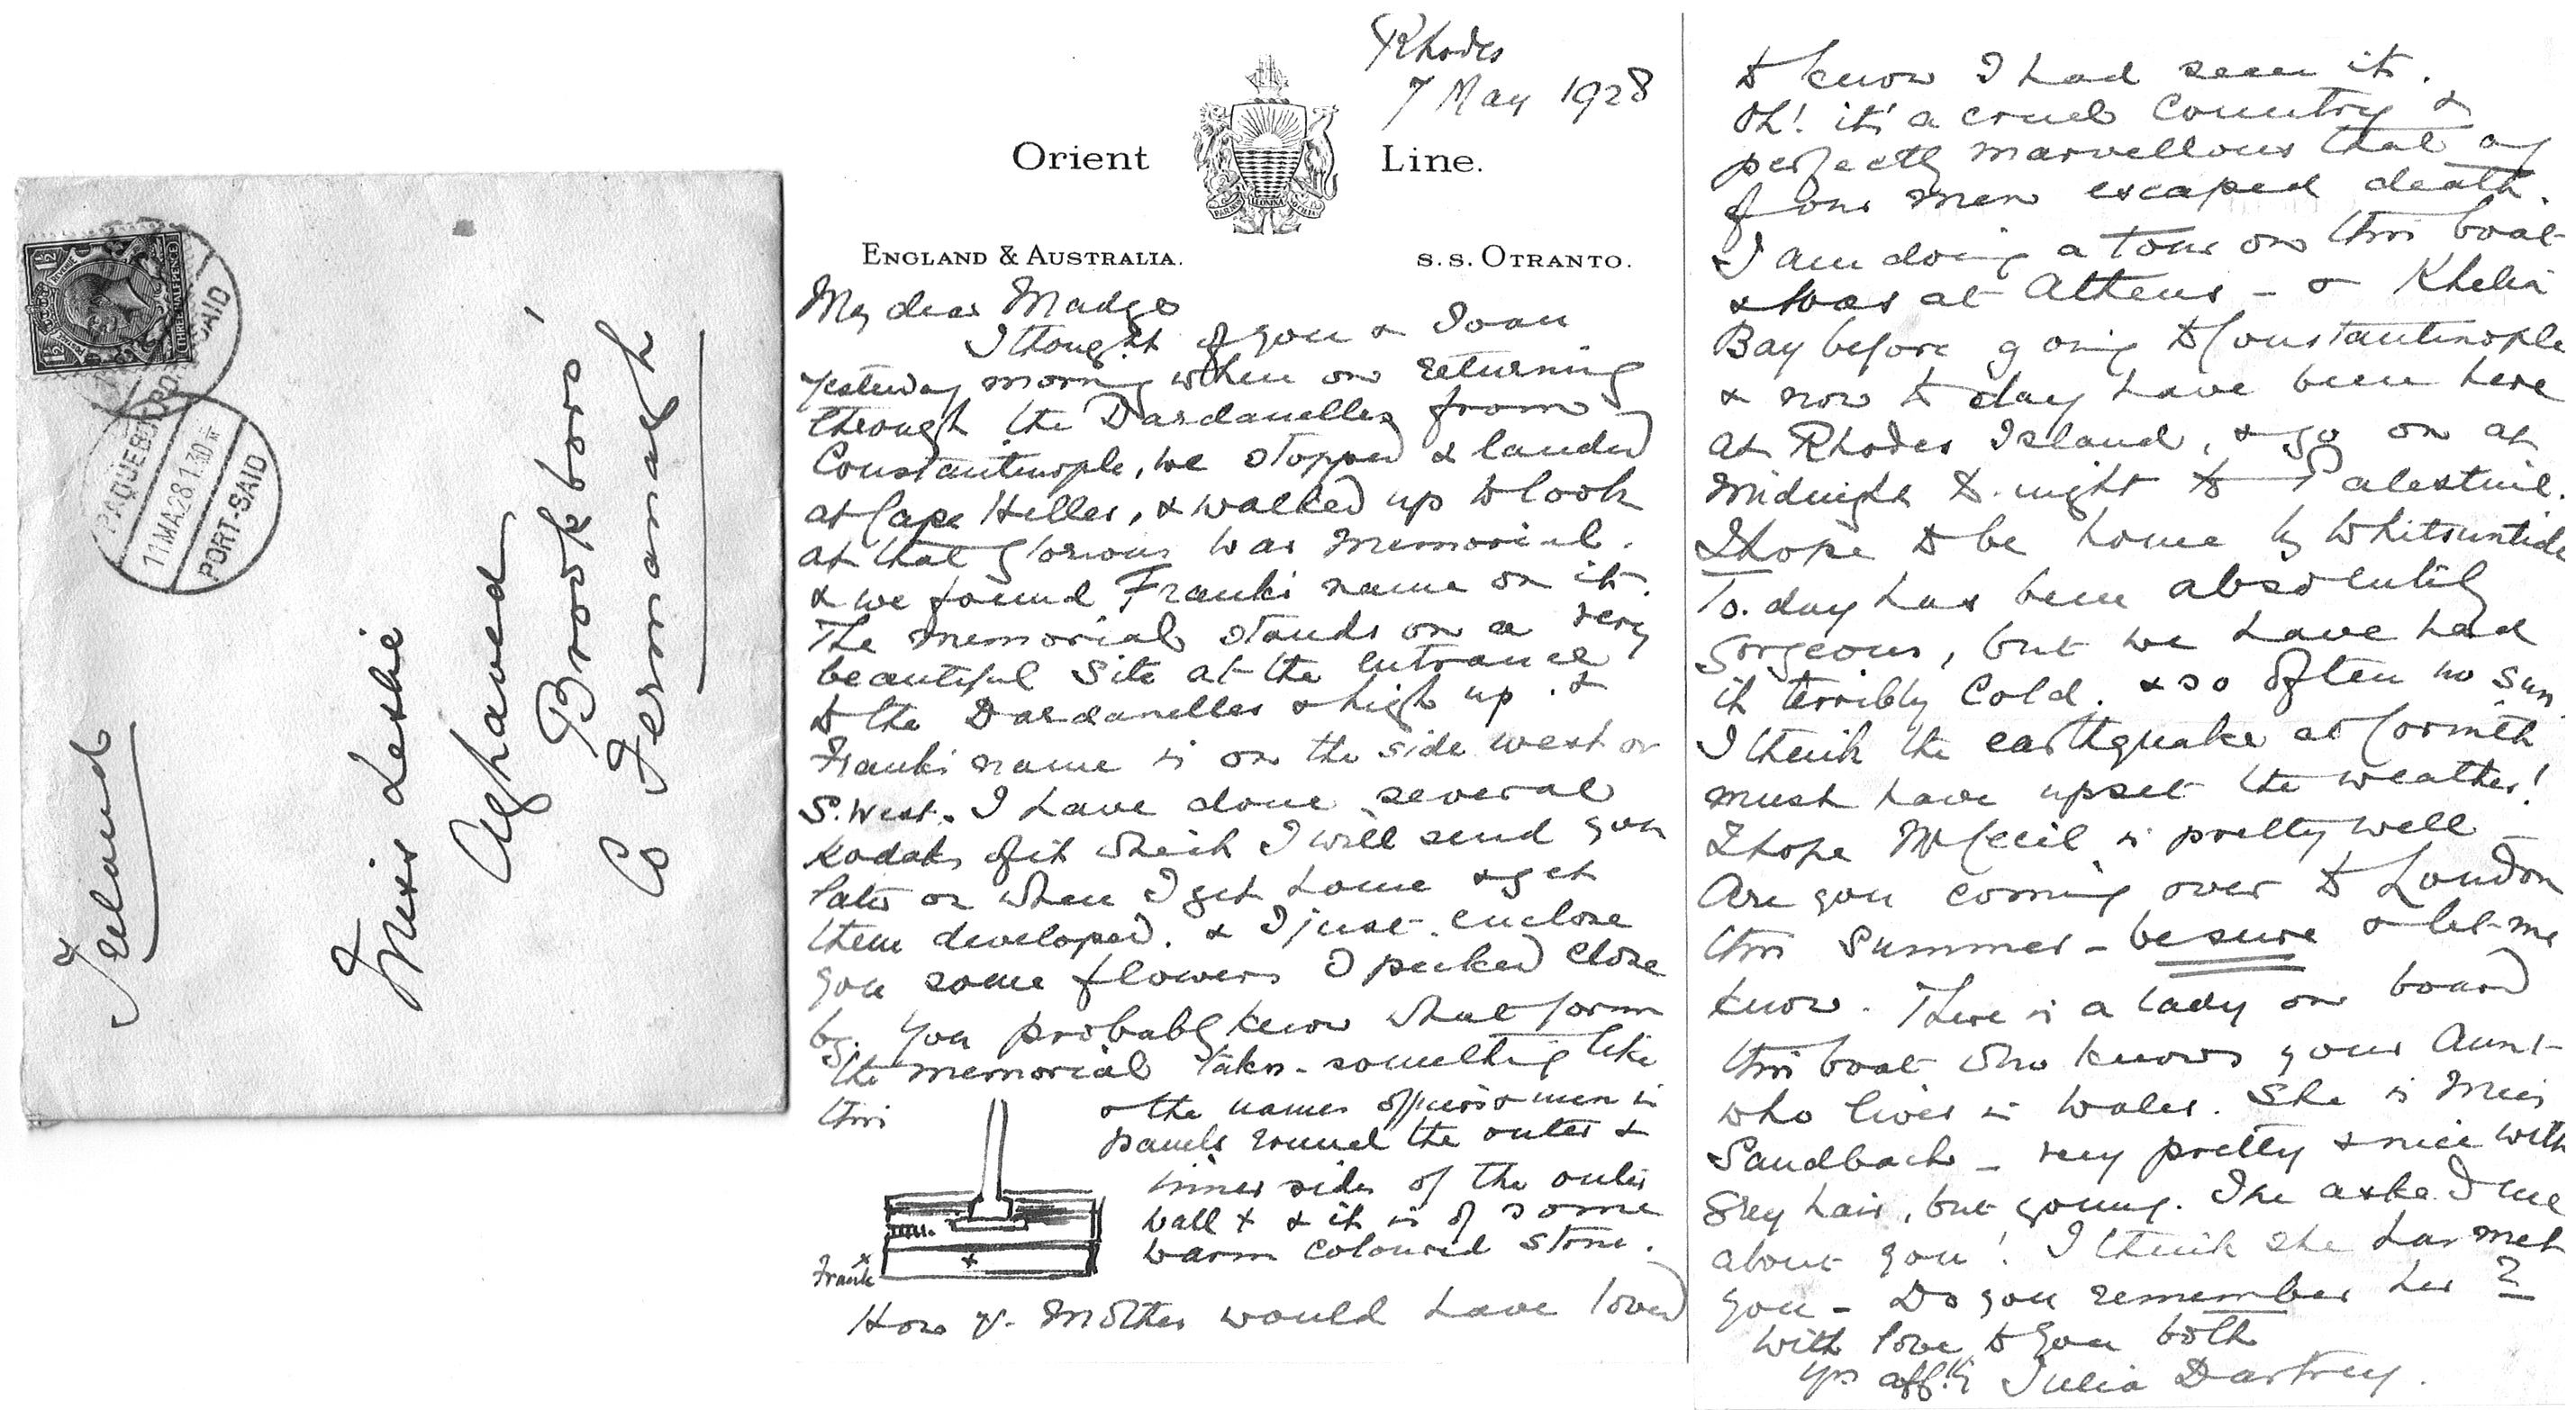 1½
THREE HALFPENCE
PAQUEBOT
11 MA 28 1.30
PORT-SAID
Ireland
Miss Leslie
Aghavea
Brookboro'
Co Fermanagh
Rhodes
7 May 1928
Orient Line.
ENGLAND & AUSTRALIA. S.S. OTRANTO.
My dear Madge
I thought of you & Joan
yesterday morning when on returning
through the Dardanelles from
Constantinople, we stopped & landed
at Cape Helles, & walked up to look
at that glorious War Memorial.
& we found Franks name on it.
The memorial stands on a very
beautiful site at the entrance
to the Dardanelles & high up. &
Franks name is on the side west or
S. West. I have done several
Kodaks of it which I will send you
later or when I get home & get
them developed. & I just enclose
you some flowers I picked close
by. You probably know what form
the memorial takes - something like
this
& the names officers & men in
panels round the outer &
inner sides of the outer
wall x & it is of some
warm coloured stone.
x
Frank
x
How yr. Mother would have loved
to know I had seen it.
Oh! it's a cruel country &
perfectly marvellous that any
of our men escaped death.
I am doing a tour on this boat
& was at Athens - &
Bay before going to Constantinople
& now to day have been here
at Rhodes Island, & go on at
midnight to-night to Palestine.
I hope to be home by Whitsuntide
To-day has been absolutely
gorgeous, but we have had
it terribly cold. & so often no sun.
I think the earthquake at Corinth
must have upset the weather!
I hope Mr Cecil is pretty well -
Are you coming over to London
this Summer - be sure & let me
know. There is a lady on board
this boat who knows your Aunt
who lives in Wales. She is Miss
Sandbach - very pretty & nice with
grey hair, but young. She asked me
about you! I think she has met
you - Do you remember her?
With love to you both
yrs affly Julia Dartrey.